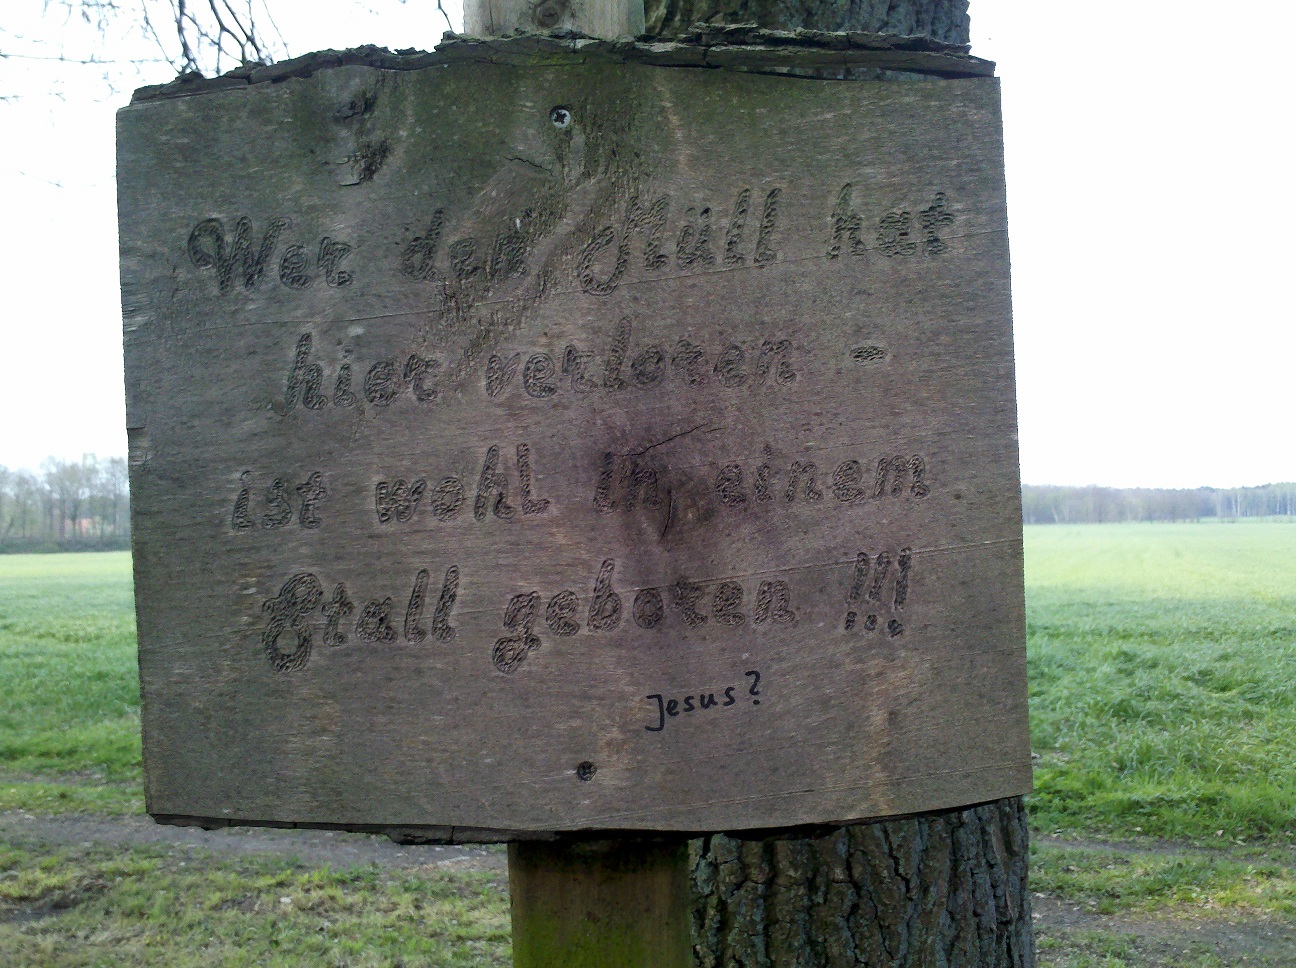 Wer den Müll hat
hier verloren -
ist wohl in einem
Stall geboren !!!
Jesus?